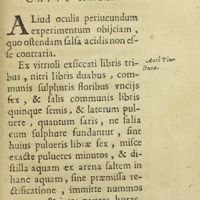 Aliud oculis periucundum
experimentum obijciam,
quo ostendam salsa acidis non es-
se contraria.
Ex vitrioli exsiccati libris tri-
bus, nitri libris duabus, com-
munis sulphuris floribus vncijs
sex, & salis communis libris
quinque semis, & laterum pul-
uere, quantum satis, ne salia
cum sulphure fundantur, sine
huius pulueris libræ sex, misce
exacte pulueres minutos, & di-
stilla aquam ex arena saltem in
hanc aquam, sine præmissa re-
ctificatione, immitte nummos